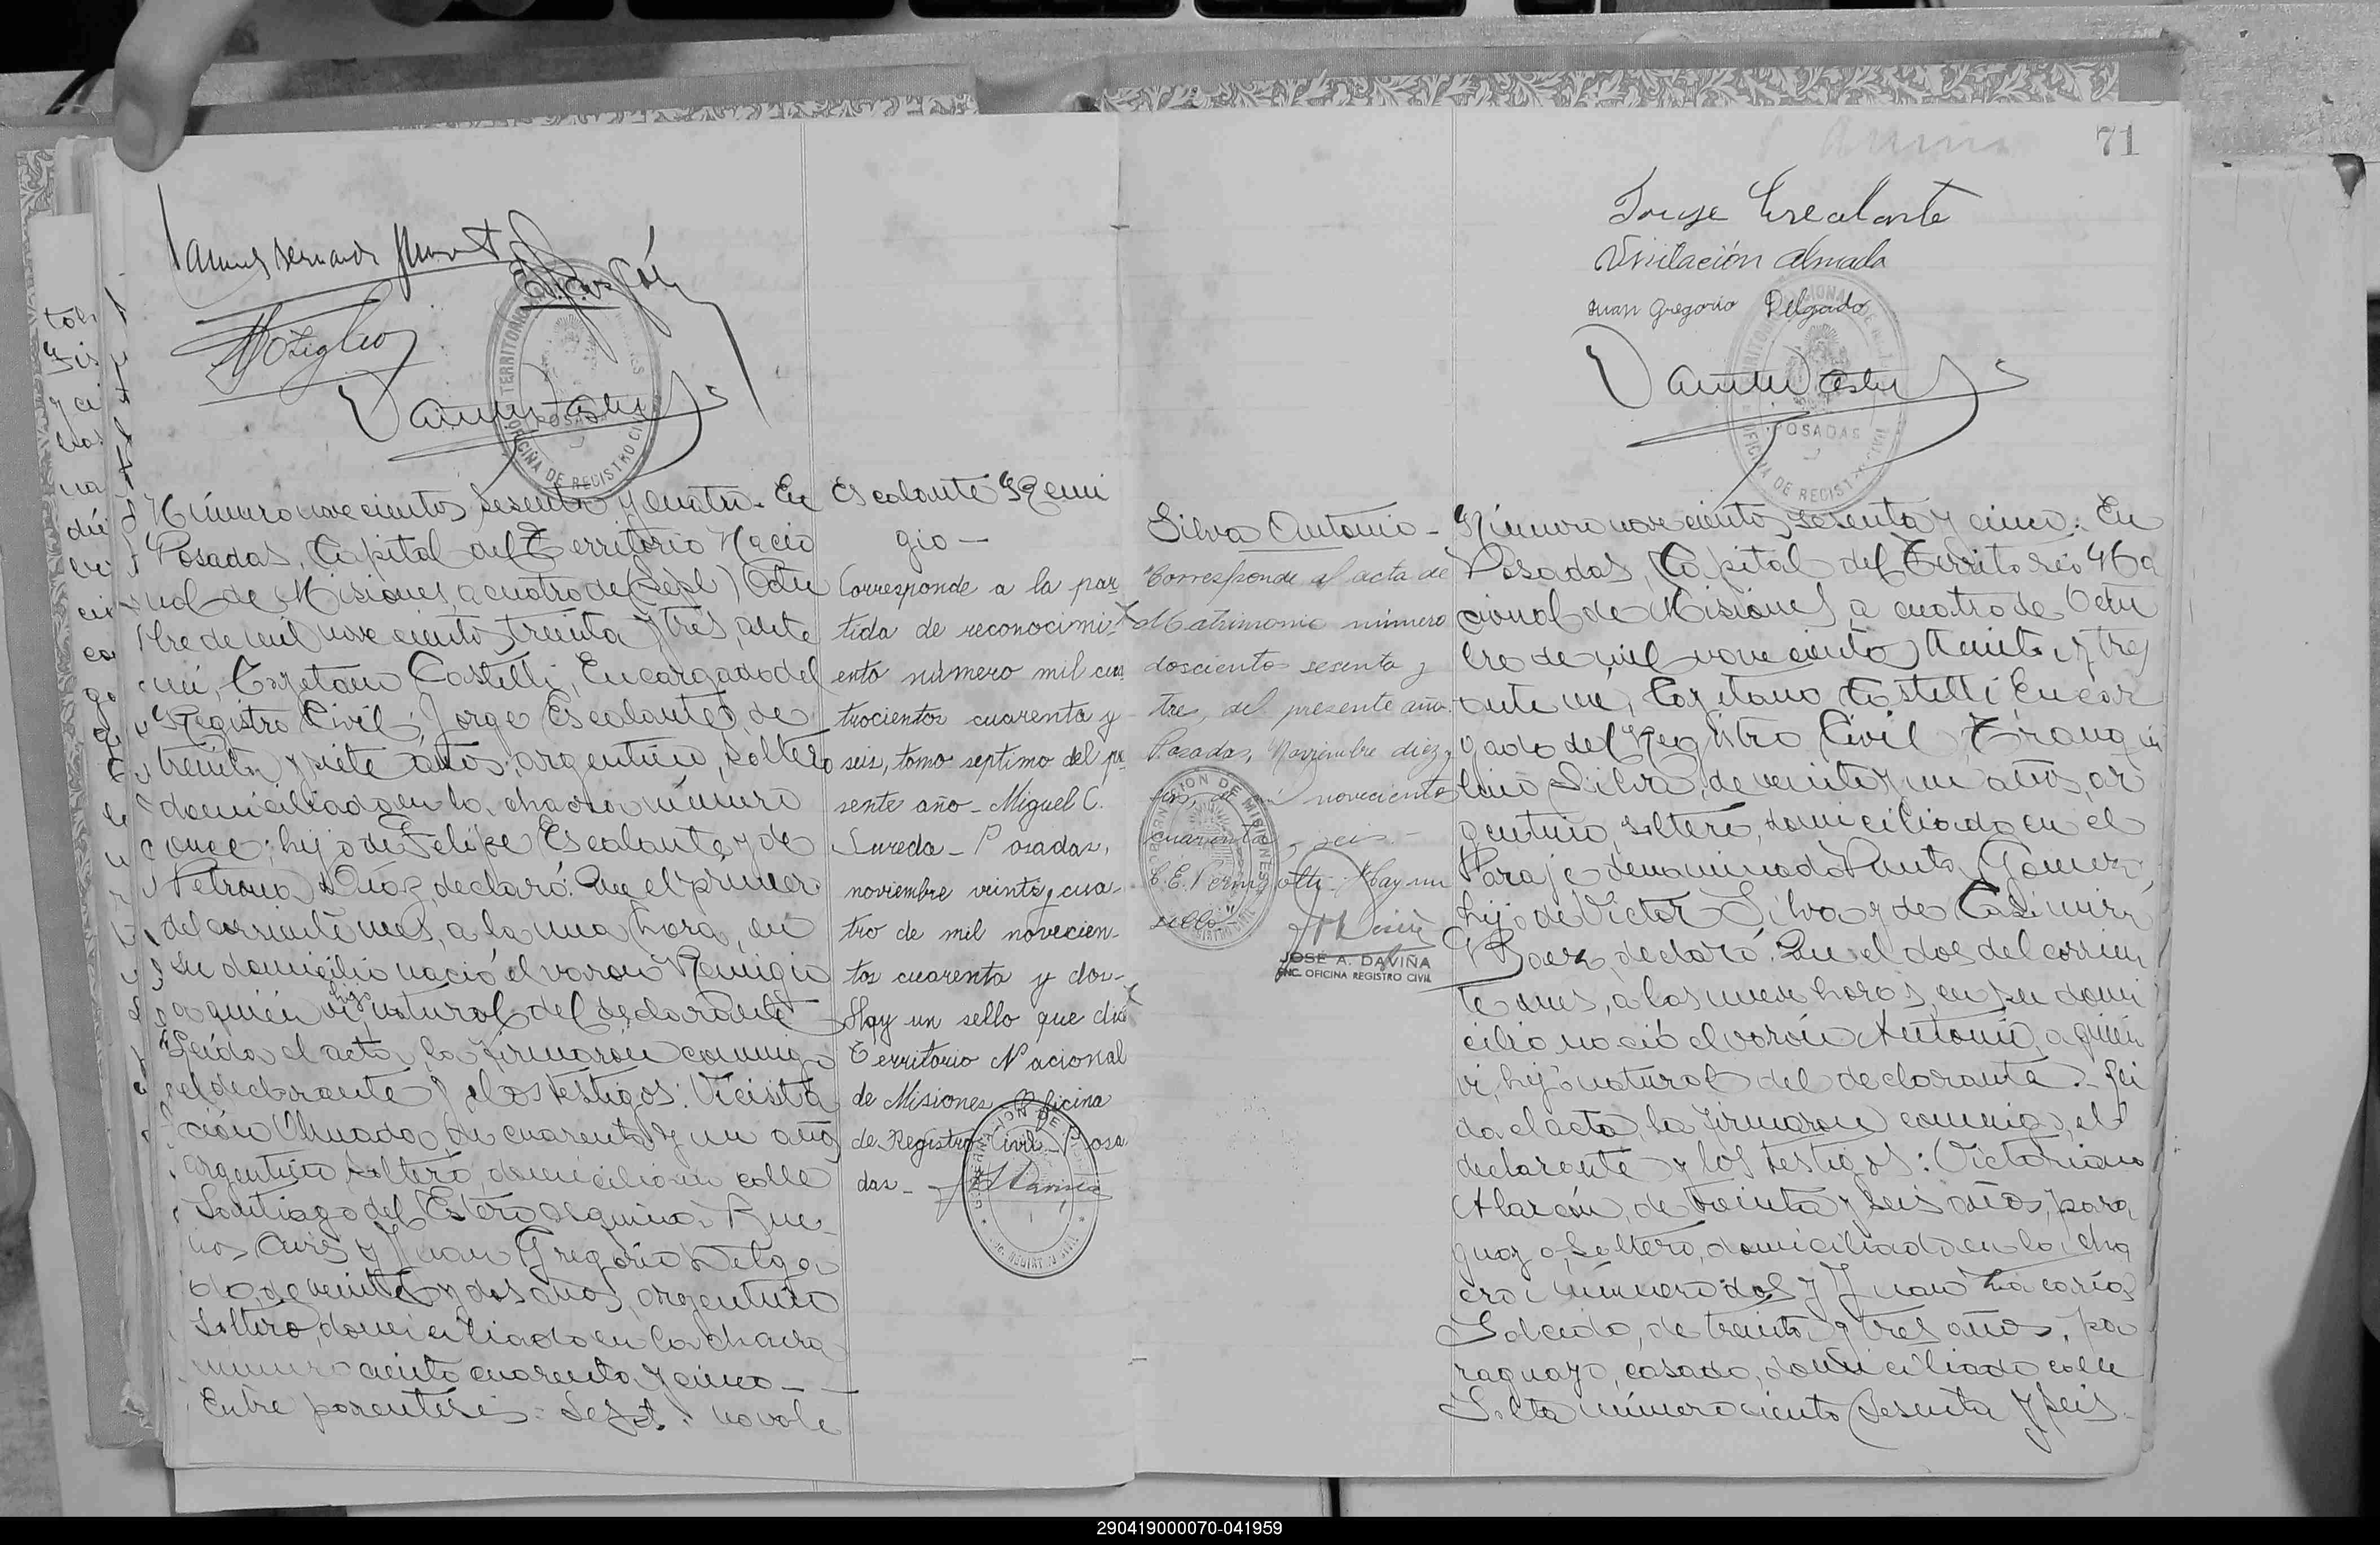 Número novecientos sesenta y cuatro. En
Posadas, Capital del Territorio Nacio
nal de Misiones, a cuatro de (Sept) Octu
bre de mil novecientos treinta y tres, ante
mi, Cayetano Castelli, Encargado del
Registro Civil, Jorge Escalante, de
treinta y siete años, argentino, soltero
domiciliado en la chacra número
once; hijo de Felipe Escalante y de
Petrona Diaz, declaró: Que el primero
del corriente mes, a la una hora, en
su domicilio nació el varon Remigio
a quien vi, hijo natural del declarante
Leida el acta, la firmaron conmigo
el declarante y los testigos: Visita
ción Almada, de cuarenta y un años
argentino soltero, domicilio en calle
Santiago del Estero esquina Bue
nos Aires y Juan Gregorio Delga
do, de veinte y dos años, argentino
soltero, domiciliado en la chacra
número ciento cuarenta y cinco
Entre parentesis: Sept. no vale
Escalante Remi
gio
Corresponde a la par
tida de reconocimi
ento número mil cua
trocientos cuarenta y
seis, tomo septimo del pre
sente año - Miguel C.
Lureda - Posadas,
noviembre veinte y cua-
tro de mil novecien-
tos cuarenta y dos-
Hay un sello que dice
Territorio Nacional
de Misiones Oficina
de Registro Civil - Posa
das -
Silva Antonio -
Corresponde al acta de
Matrimonio número
doscientos sesenta y
tres, del presente año.
Posadas, Noviembre diez y
novecientos
cuarenta y seis -
Hay un
sello"
JOSÉ A. DAVIÑA
ENC. OFICINA REGISTRO CIVIL
71
Jorge Escalante
Visitación Almada
Juan Gregorio Delgado
POSADAS
OFICINA DE REGISTRO CIVIL
Número novecientos sesenta y cinco. En
Posadas, Capital del Territorio Na
cional de Misiones, a cuatro de Octu
bre de mil novecientos treinta y tres
ante mi, Cayetano Castelli Encar
gado del Registro Civil, Tranqui
lino Silva, de veinte y un años, ar
gentino, soltero, domiciliado en el
Paraje denominado Punta Gomez,
hijo de Victor Silva y de Casimira
Baez, declaró: Que el dos del corrien
te mes, a las nueve horas, en su domi
cilio nació el varón Antonio, a quien
vi, hijo natural del declarante. Lei
da el acta, la firmaron conmigo, el
declarante y los testigos: Victoriano
Alarcón, de treinta y seis años, para
guayo, soltero, domiciliado en la cha
cra número dos y Juan Zacarías
Salcedo, de treinta y tres años, pa
raguayo, casado, domiciliado calle
Salta número ciento sesenta y seis.
290419000070-041959